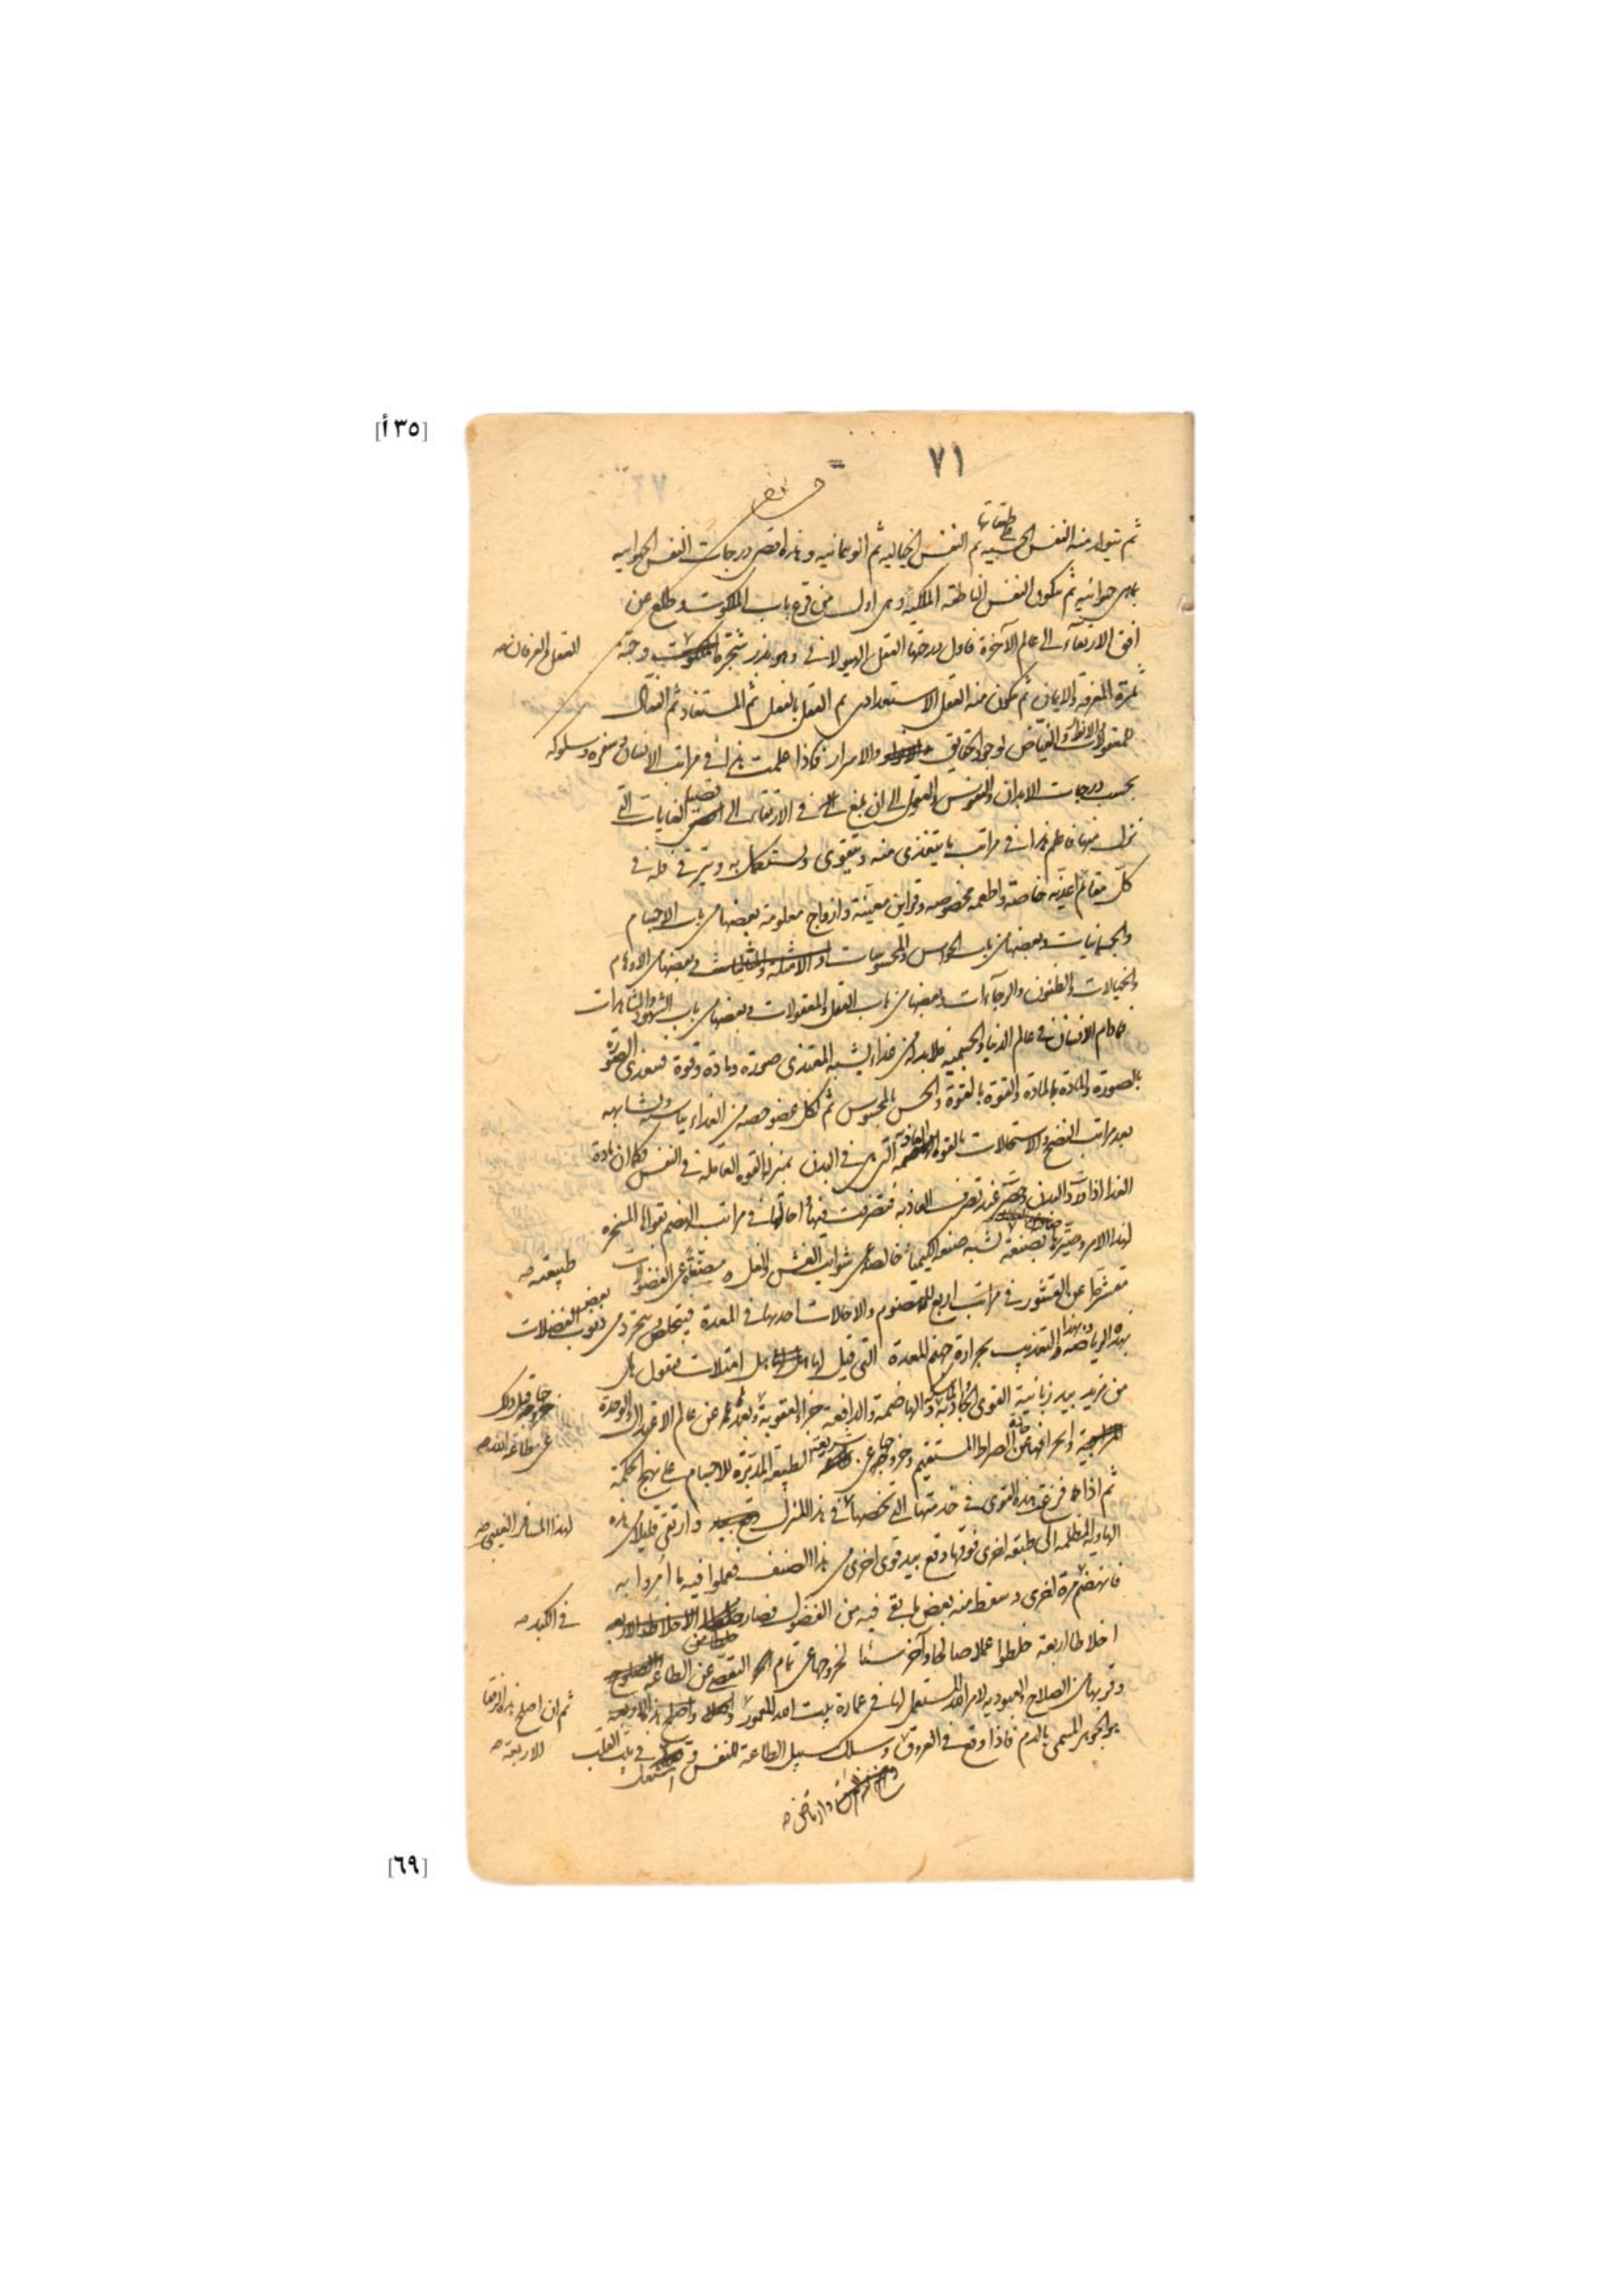 [٣٥ أ]
٧١
ثم يتولد منه النفس الحسية على طبقاتها ثم النفس الخيالية ثم الوهمانية وهذه اقصى درجات النفس الحيوانية
بما هي حيوانية ثم يتكون النفس الناطقة الملكية وهي اول من قرع باب الملكوت وطلع من
افق الارتقاء الى عالم الآخرة فاول درجتها العقل الهيولاني وهو بذر شجرة الملكوت وحبة
العقل والعرفان صح
ثمرة المعرفة والايمان ثم يتكون منه العقل الاستعدادى ثم العقل بالفعل ثم المستفاد ثم الفعال
للمعقولات والانظار والفياض لوجود الحقايق والاسرار فاذا علمت هذا في مراتب الانسان وسفره وسلوكه
بحسب درجات الابدان والنفوس والعقول الى ان بلغ في الارتقاء الى الغايات التي
نزل منها فاعلم هذا في مراتب ما يتغذى منه ويتقوى ويستكمل به ويترقى فله في
كل مقام اغذية خاصة واطعمة مخصوصة وقراين معينة وازواج معلومة بعضها من باب الاجسام
والجسمانيات وبعضها من باب الحواس والمحسوسات وبعضها من الاوهام
والخيالات والظنون والرجاءات وبعضها من باب العقل والمعقولات وبعضها من باب الشهود والمشاهدات
فمادام الانسان في عالم الدنيا والجسمية فلا بد له من غذاء يشبه المغتذى صورة ومادة وقوة فيتغذى الصورة
بالصورة والمادة بالمادة والقوة بالقوة والحس بالمحسوس ثم لكل عضو حصة من الغذاء يناسبه ويشابهه
بعد مراتب النضج والاستحالات بالقوة الغاذية التي هي في البدن بمنزلة القوة العاقلة في النفس فكما ان مادة
الغذاء اذا ورد البدن وحضر عند تصرف الغاذية فتصرفت فيها واحالتها في مراتب الهضم بقواها المسخرة
لهذا الامر وصيرتها بصنعة تشبه صنعة الكيمياء خالصة عن شوايب الغش والغل مصفاة عن الفضولات
طبيعته صح
متقشرة عن القشور في مراتب اربع للهضوم والاحالات احدها في المعدة فيتخلص ويتجرد من ذنوب بعض الفضلات
بهذه الرياضة وبهذا التعذيب بحرارة جهنم المعدة التي قيل لها هل امتلات فيقول هل
من مزيد بيد زبانية القوى الجاذبة والماسكة والهاضمة والدافعة جزاء العقوبة وبعدها عن عالم الاعتدال والوحدة
المزاجية وانحرافها عن الصراط المستقيم وخروجها عن شريعة الطبيعة المدبرة للاجسام على نهج الحكمة
عن طاعة الله صح
ثم اذا فرغت هذه القوى في خدمتها التي تخصها في هذا المنزل وارتقى قليلا من هذه
لهذا المسافر الغيبي صح
الهاوية المظلمة الى طبقة اخرى فوقها وقع بيد قوى اخرى من هذا الصنف فعملوا فيه ما امروا به
فانهضم مرة اخرى وسقط منه بعض ما بقى فيه من الفضول فصار
في الكبد صح
اخلاطا اربعة خلطوا عملا صالحا وآخر سيئا لخروجها عن تمام التعصى عن الطاعة
وقربها من الصلاح والعبودية لامر الله المستعمل لها في عمارة بيت الله المعمور
ثم ان اصلح هذه الرفقاء
الاربعة صح
هو الجوهر المسمى بالدم فاذا وقع في العروق وسلك سبيل الطاعة للنفس في بيت القلب
وارتاض صح
[٦٩]